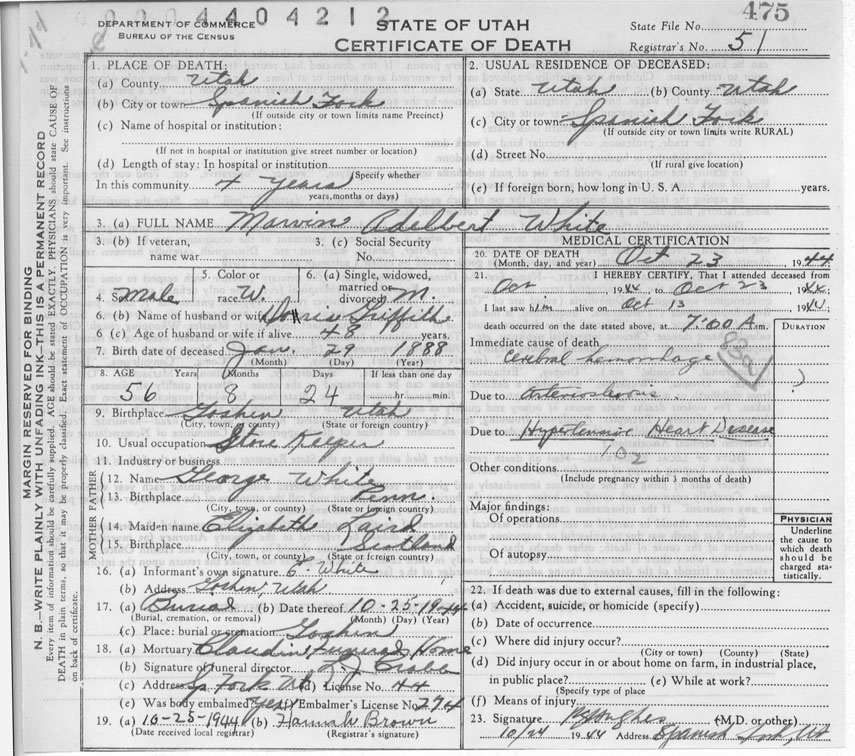 0004404212
475
DEPARTMENT OF COMMERCE
BUREAU OF THE CENSUS
STATE OF UTAH
CERTIFICATE OF DEATH
State File No.
Registrar's No. 51
MARGIN RESERVED FOR BINDING
N. B.—WRITE PLAINLY WITH UNFADING INK—THIS IS A PERMANENT RECORD
Every item of information should be carefully supplied. AGE should be stated EXACTLY. PHYSICIANS should state CAUSE OF
DEATH in plain terms, so that it may be properly classified. Exact statement of OCCUPATION is very important. See instructions
on back of certificate.
1. PLACE OF DEATH:
(a) County Utah
(b) City or town Spanish Fork
(If outside city or town limits name Precinct)
(c) Name of hospital or institution:
(If not in hospital or institution give street number or location)
(d) Length of stay: In hospital or institution
(Specify whether
In this community 4 years
years, months or days)
2. USUAL RESIDENCE OF DECEASED:
(a) State Utah (b) County Utah
(c) City or town Spanish Fork
(If outside city or town limits write RURAL)
(d) Street No.
(If rural give location)
(e) If foreign born, how long in U. S. A. years.
3. (a) FULL NAME Marvin Adelbert White
3. (b) If veteran,
name war
3. (c) Social Security
No.
4. Sex Male
5. Color or
race W.
6. (a) Single, widowed,
married or
divorced M.
6. (b) Name of husband or wife Doris Griffith
6. (c) Age of husband or wife if alive 48 years.
7. Birth date of deceased Jan. 29 1888
(Month) (Day) (Year)
8. AGE Years Months Days If less than one day
56 8 24 hr. min.
9. Birthplace Goshen Utah
(City, town, or county) (State or foreign country)
10. Usual occupation Store Keeper
11. Industry or business
FATHER
12. Name George White
13. Birthplace Penn.
(City, town, or county) (State or foreign country)
MOTHER
14. Maiden name Elizabeth Laird
15. Birthplace Scotland
(City, town, or county) (State or foreign country)
16. (a) Informant's own signature White
(b) Address Goshen, Utah
17. (a) Burial (b) Date thereof 10-25-1944
(Burial, cremation, or removal) (Month) (Day) (Year)
(c) Place: burial or cremation Goshen
18. (a) Mortuary Claudin Funeral Home
(b) Signature of funeral director
(c) Address Sp Fork Ut (d) License No. 44
(e) Was body embalmed yes Embalmer's License No. 274
19. (a) 10-25-1944 (b) Hannah Brown
(Date received local registrar) (Registrar's signature)
MEDICAL CERTIFICATION
20. DATE OF DEATH Oct 23 1944
(Month, day, and year)
21. I HEREBY CERTIFY, That I attended deceased from
Oct 1944 to Oct 23 1944;
I last saw him alive on Oct 13 1944
death occurred on the date stated above, at 7:00 A.m.
DURATION
Immediate cause of death
Cerebral hemorrhage
83a
?
Due to Arteriosclerosis
Due to Hypertensive Heart Disease
102
Other conditions
(Include pregnancy within 3 months of death)
Major findings:
Of operations
Of autopsy
PHYSICIAN
Underline
the cause to
which death
should be
charged sta-
tistically.
22. If death was due to external causes, fill in the following:
(a) Accident, suicide, or homicide (specify)
(b) Date of occurrence
(c) Where did injury occur?
(City or town) (County) (State)
(d) Did injury occur in or about home on farm, in industrial place,
in public place? (e) While at work?
(Specify type of place
(f) Means of injury
23. Signature Hughes (M.D. or other)
10/24 1944 Address Spanish Fork, Ut